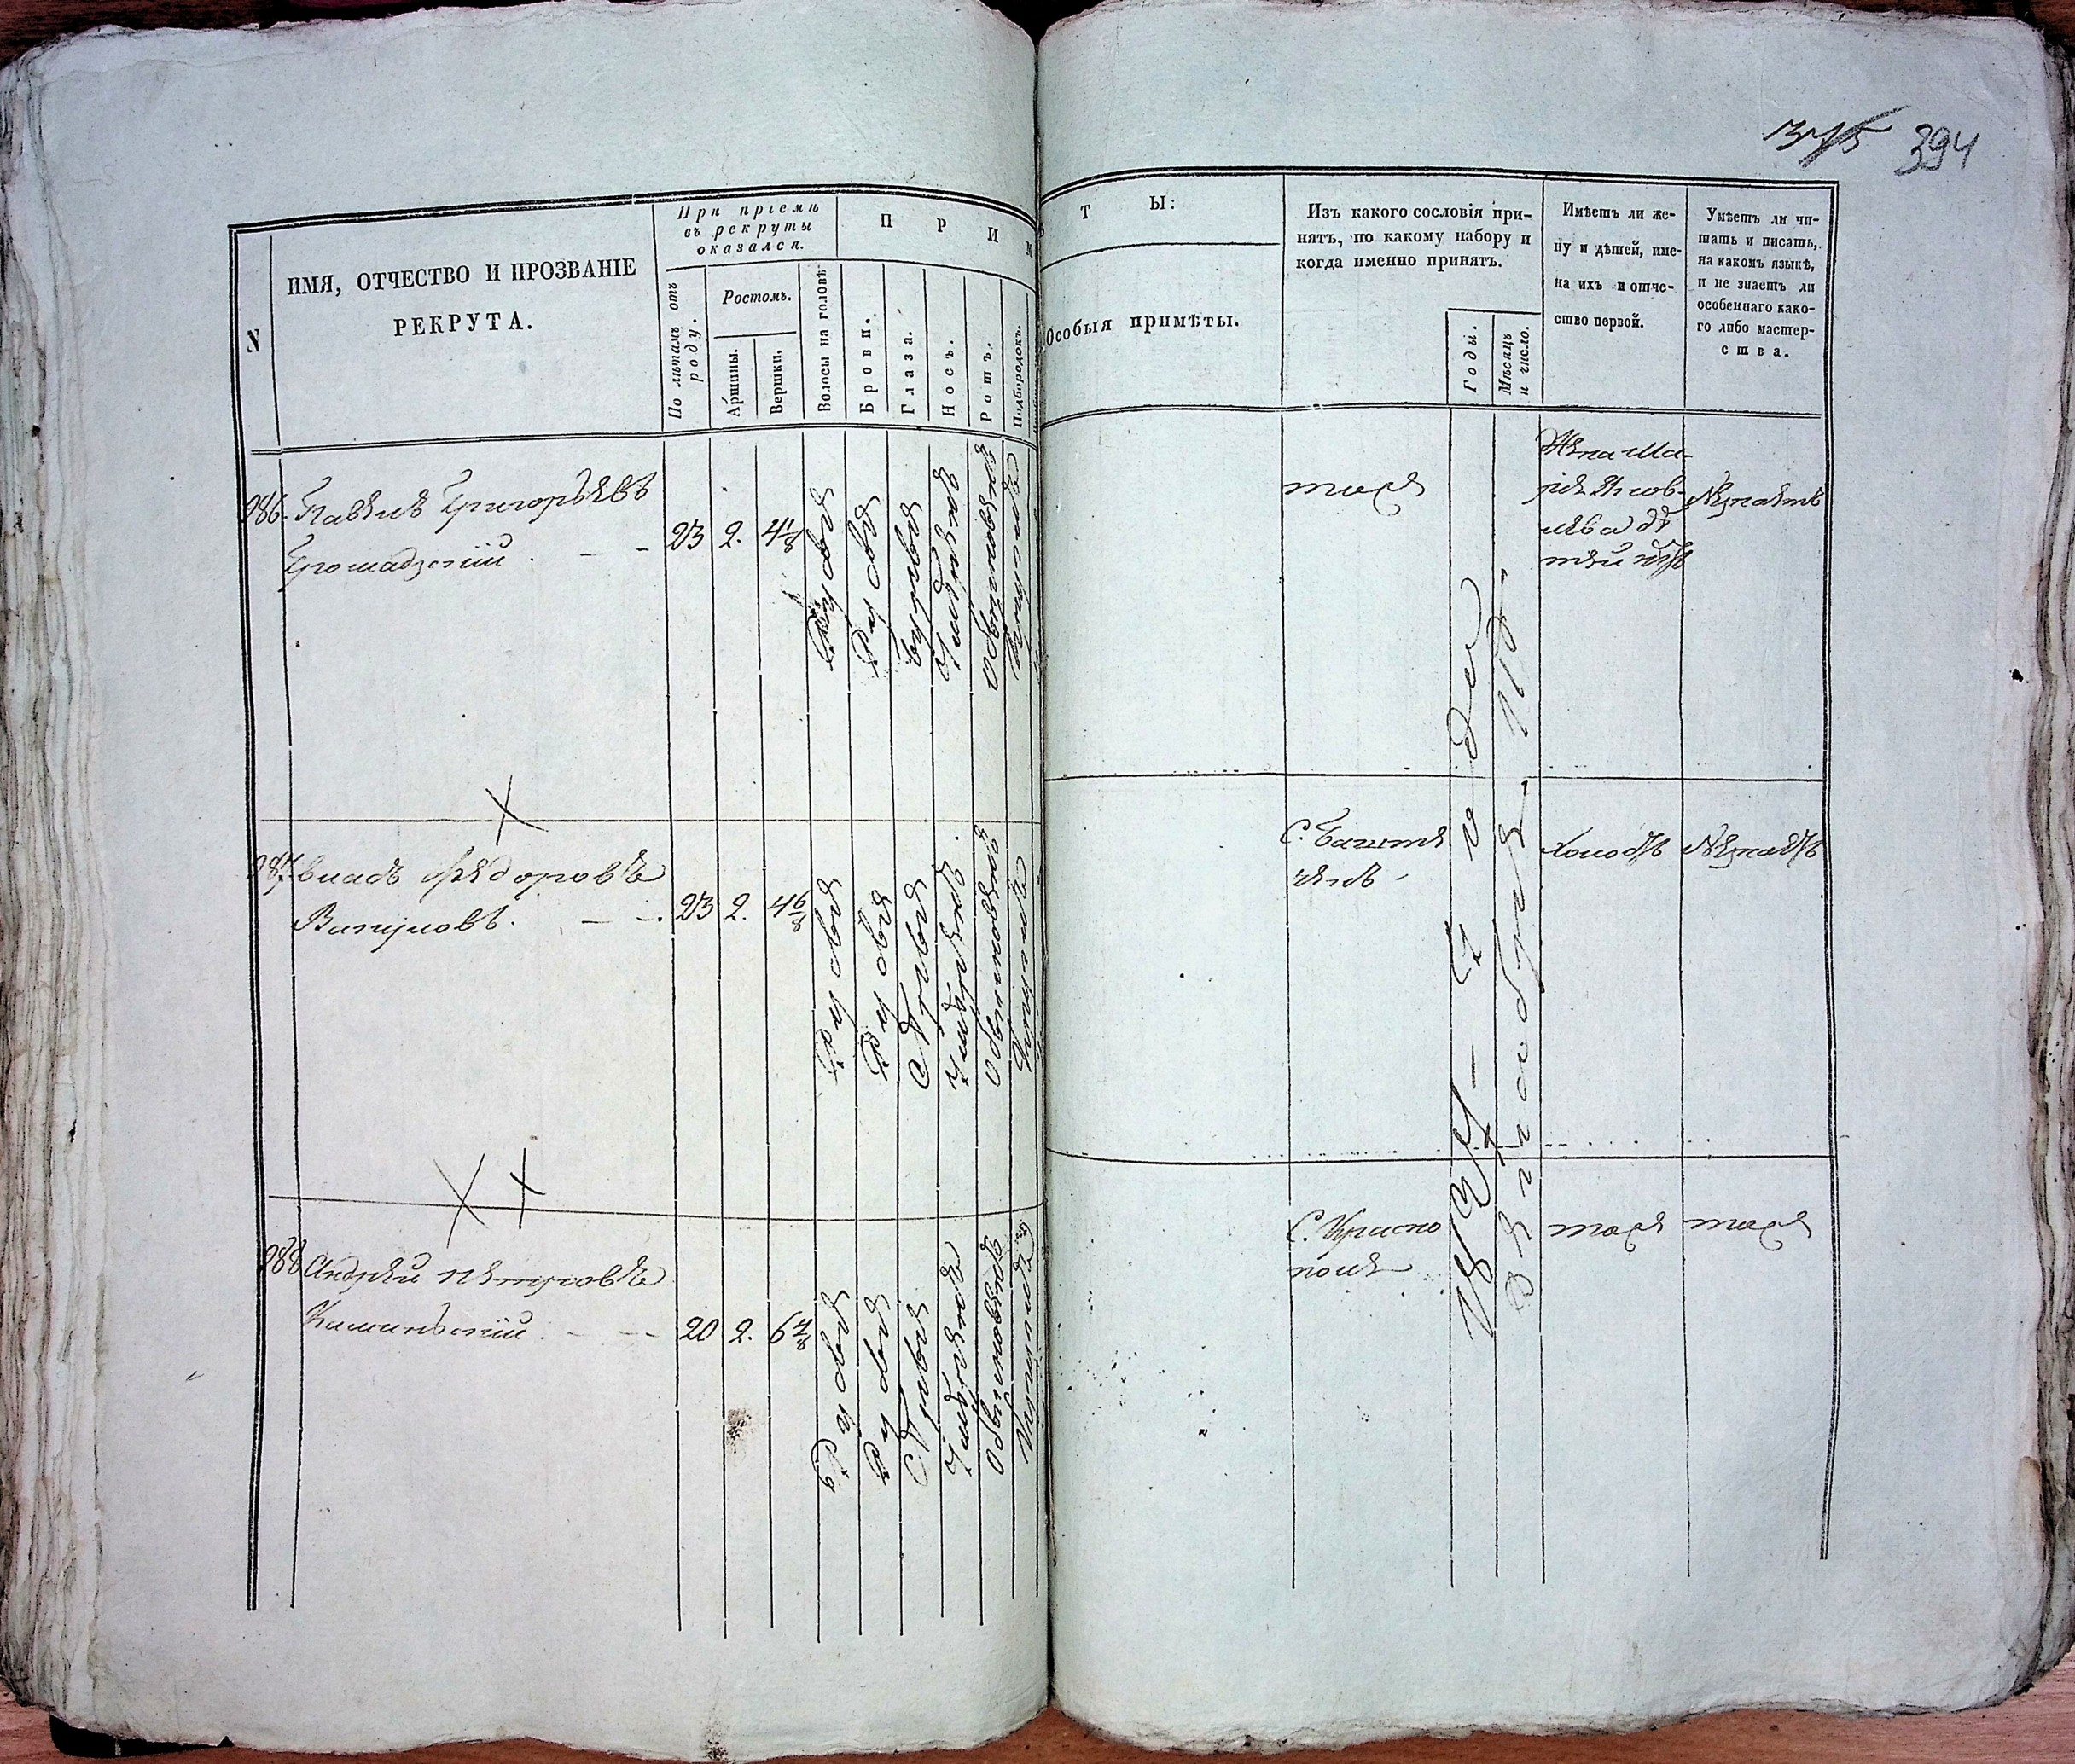 394
N
ИМЯ, ОТЧЕСТВО И ПРОЗВАНІЕ
РЕКРУТА.
При пріемѣ
въ рекруты
оказался.
По лѣтамъ отъ
роду.
Ростомъ.
Аршины.
Вершки.
П Р И М
Волосы на головѣ
Брови.
Глаза.
Носъ.
Ротъ.
Подбородокъ.
Т Ы:
Особыя примѣты.
Изъ какого сословія при-
нятъ, по какому набору и
когда именно принятъ.
Годы.
Мѣсяцъ
и число.
Имѣетъ ли же-
ну и дѣтей, име-
на ихъ и отче-
ство первой.
Умѣетъ ли чи-
тать и писать,
на какомъ языкѣ,
и не знаетъ ли
особеннаго како-
го либо мастер-
ства.
986. Павелъ Григорьевъ
Громадзскій
23 2. 4 1/8
Русые
Русые
Умѣрен
обыкновен
Круглый
тоже
Жена Ма-
рія Яков-
лева дѣ
тей нѣтъ
Незнаетъ
987 Владъ Федоровъ
23 2. 4 6/8
Русые
Русые
Сѣрые
Умѣренъ
обыкновенъ
Круглый
С. Башта
Холостъ
Незнаетъ
988 Андрей Петровъ
Каминскій
20 2. 6 4/8
Русые
Русые
Сѣрые
Умѣренъ
Обыкновенъ
Круглый
С. Красно
поле
тоже
тоже
года